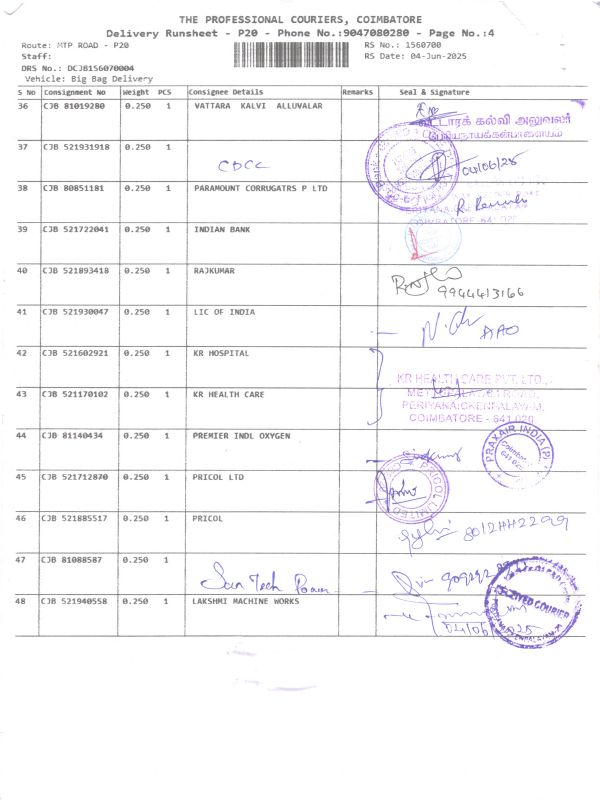 THE PROFESSIONAL COURIERS, COIMBATORE
Delivery Runsheet - P20 - Phone No.:9047080280 - Page No.:4
Route: MTP ROAD - P20 RS No.: 1560700
Staff: RS Date: 04-Jun-2025
DRS No.: DCJB156070004
Vehicle: Big Bag Delivery
S No Consignment No Weight PCS Consignee Details Remarks Seal & Signature
36 CJB 81019280 0.250 1 VATTARA KALVI ALLUVALAR
வட்டாரக் கல்வி அலுவலர்
பெரியநாயக்கன்பாளையம்
37 CJB 521931918 0.250 1
CDCC 04/06/25
38 CJB 80851181 0.250 1 PARAMOUNT CORRUGATRS P LTD
COIMBATORE 641 020
39 CJB 521722041 0.250 1 INDIAN BANK
40 CJB 521893418 0.250 1 RAJKUMAR
9944413166
41 CJB 521930047 0.250 1 LIC OF INDIA
AAO
42 CJB 521602921 0.250 1 KR HOSPITAL
KR HEALTH CARE PVT. LTD.,
43 CJB 521170102 0.250 1 KR HEALTH CARE
PERIYANAICKENPALAYAM,
COIMBATORE - 641 020
44 CJB 81140434 0.250 1 PREMIER INDL OXYGEN
PRAXAIR INDIA (P)
Coimbatore
641 020
45 CJB 521712870 0.250 1 PRICOL LTD
PRICOL LIMITED
46 CJB 521885517 0.250 1 PRICOL
47 CJB 81088587 0.250 1
Sun Tech Power
48 CJB 521940558 0.250 1 LAKSHMI MACHINE WORKS
COURIER